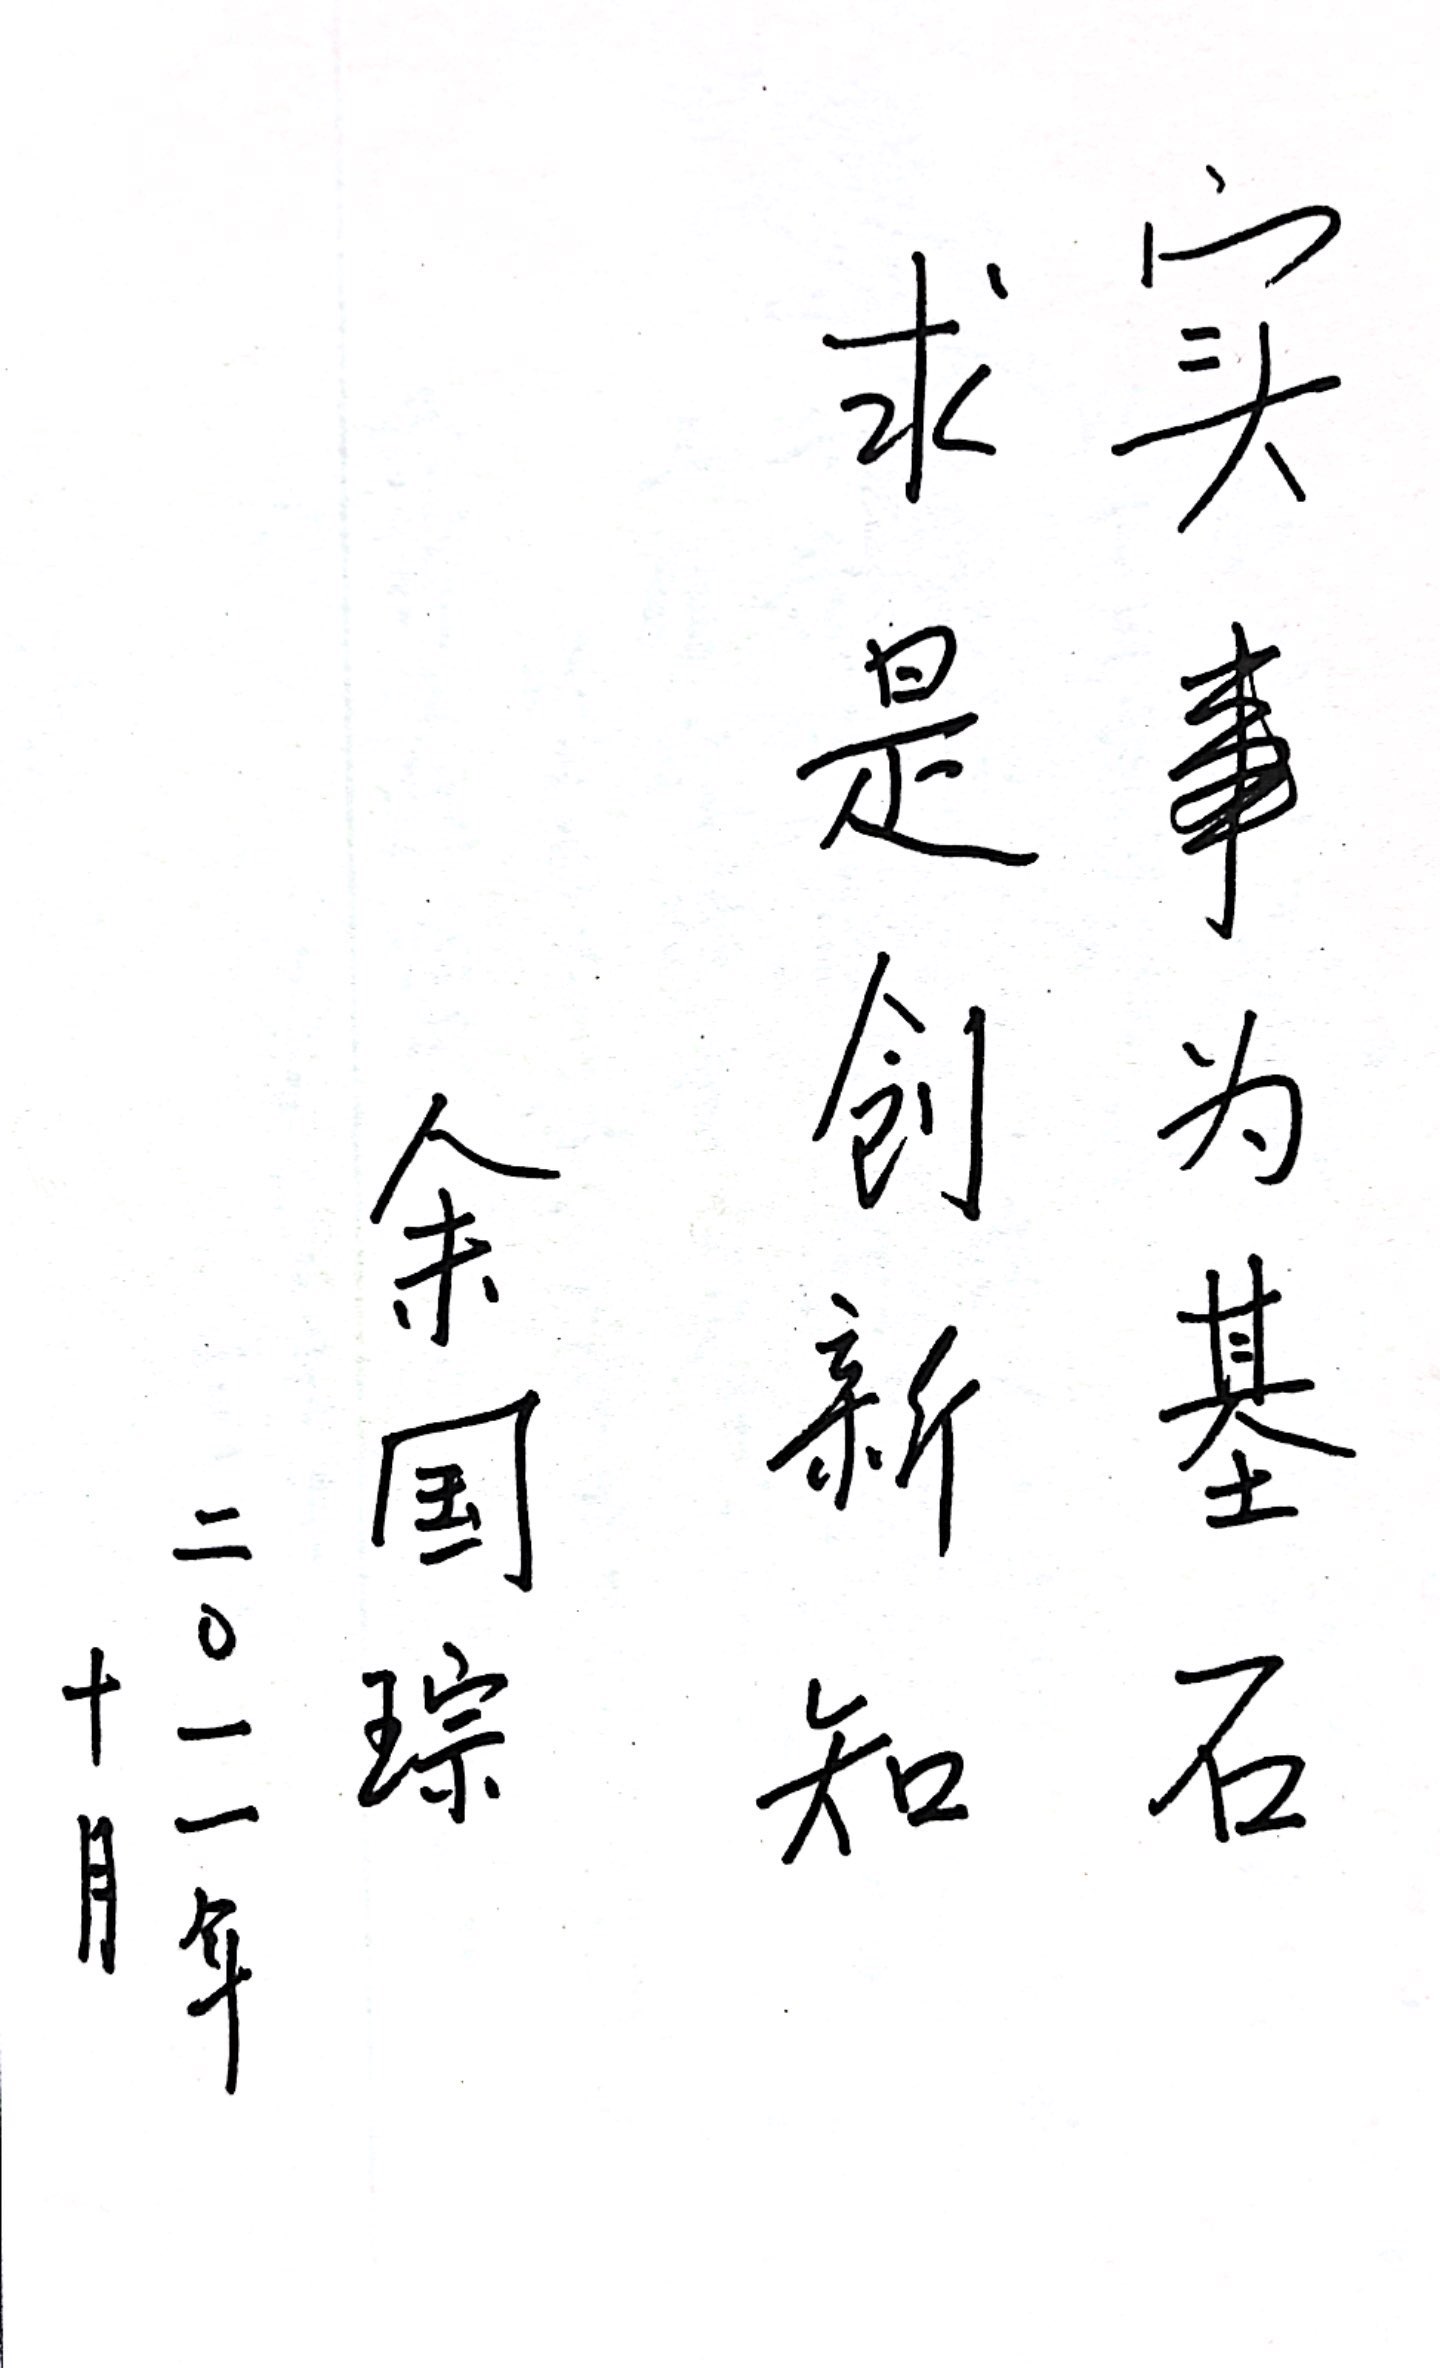 实事为基石
求是创新知
余国琮
二〇一一年
十月